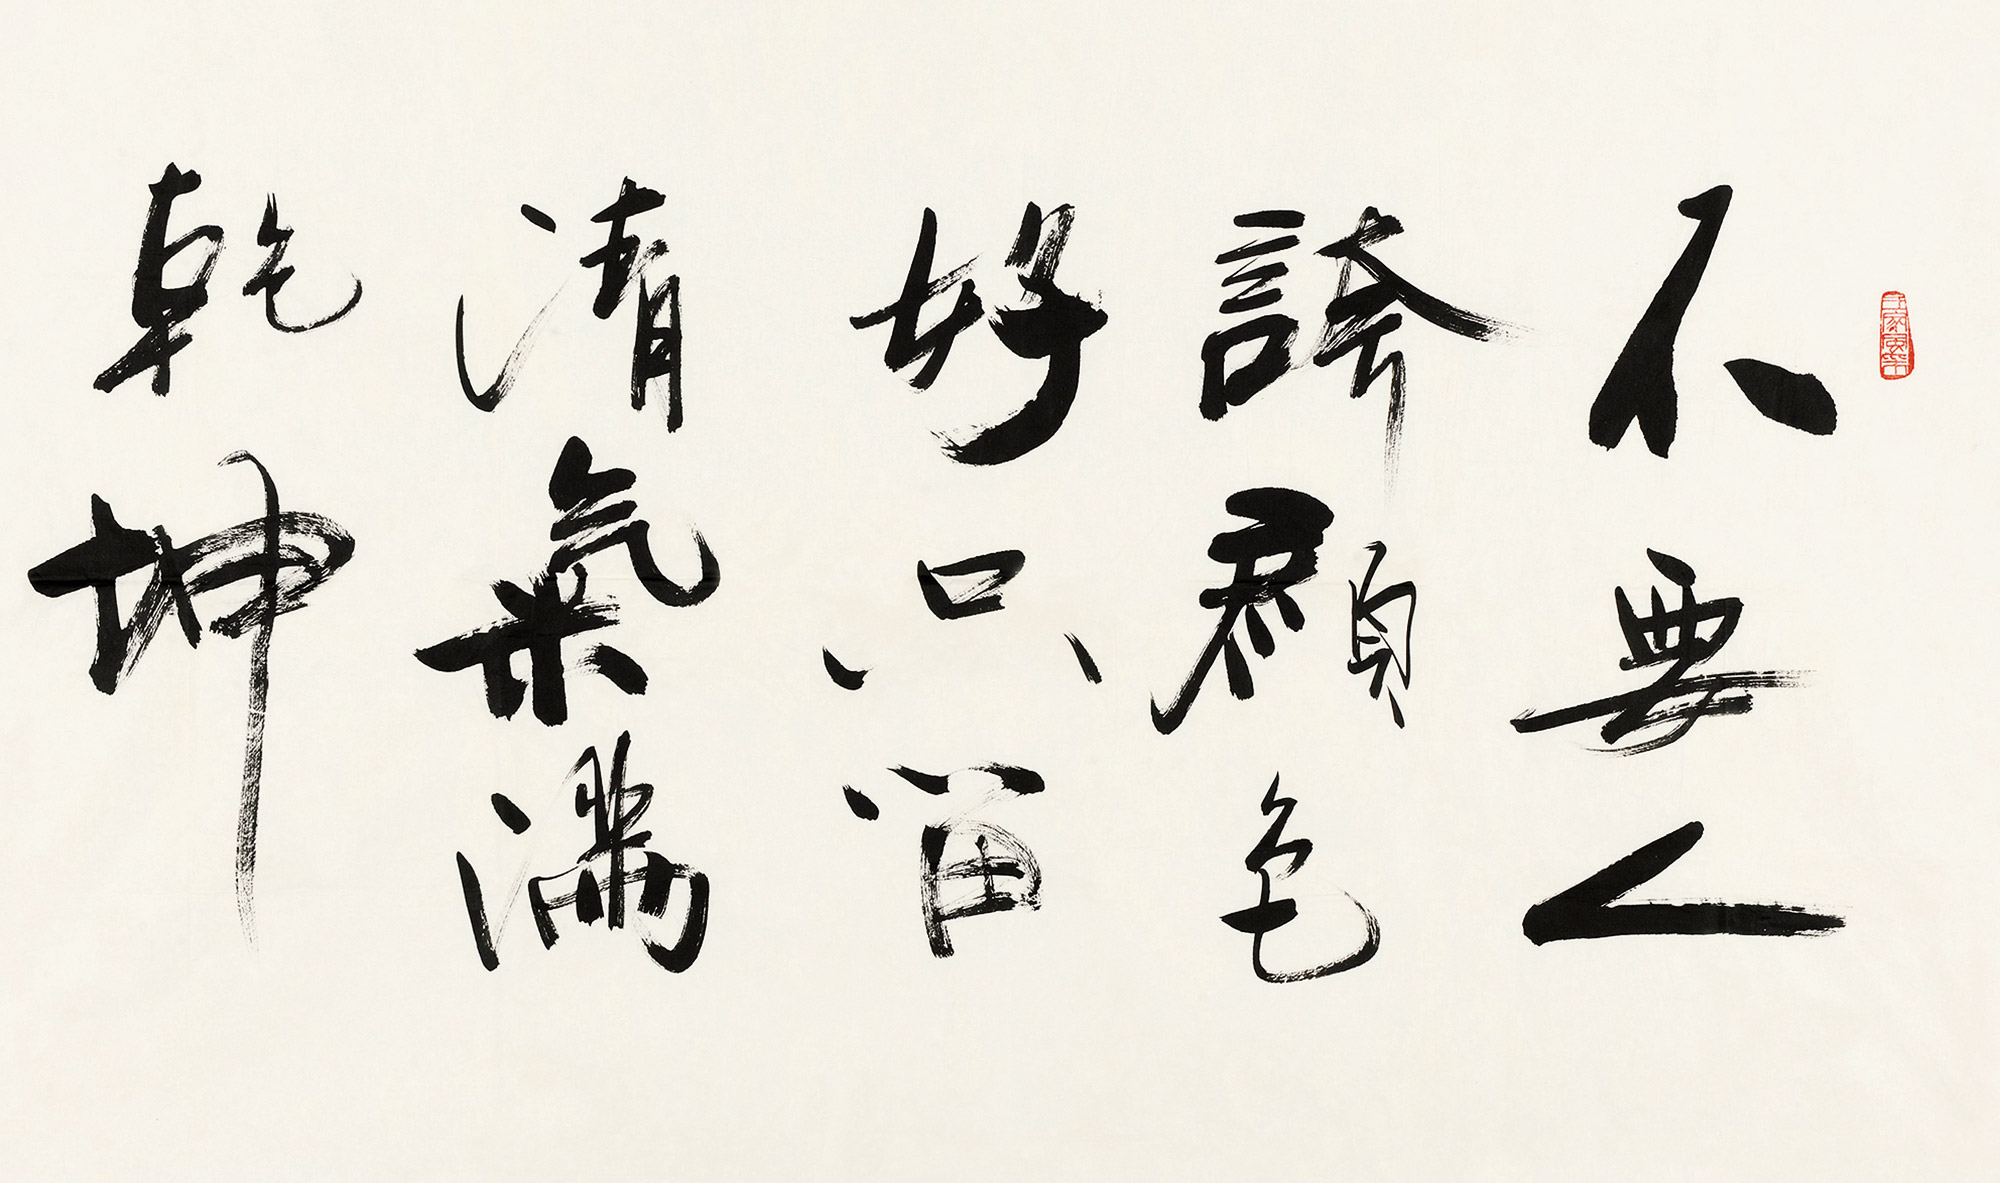 不要人
誇顔色
好只留
清氣滿
乾坤